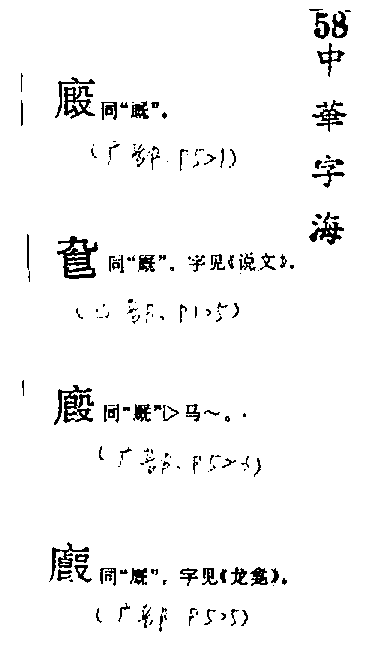 58
中華字海
廄同“厩”。
(广部、P521)
同“厩”。字见《说文》。
部、P125)
廏同“厩”▷马～。
(广部、P526)
同“厩”，字见《龙龛》。
(广部 P525)